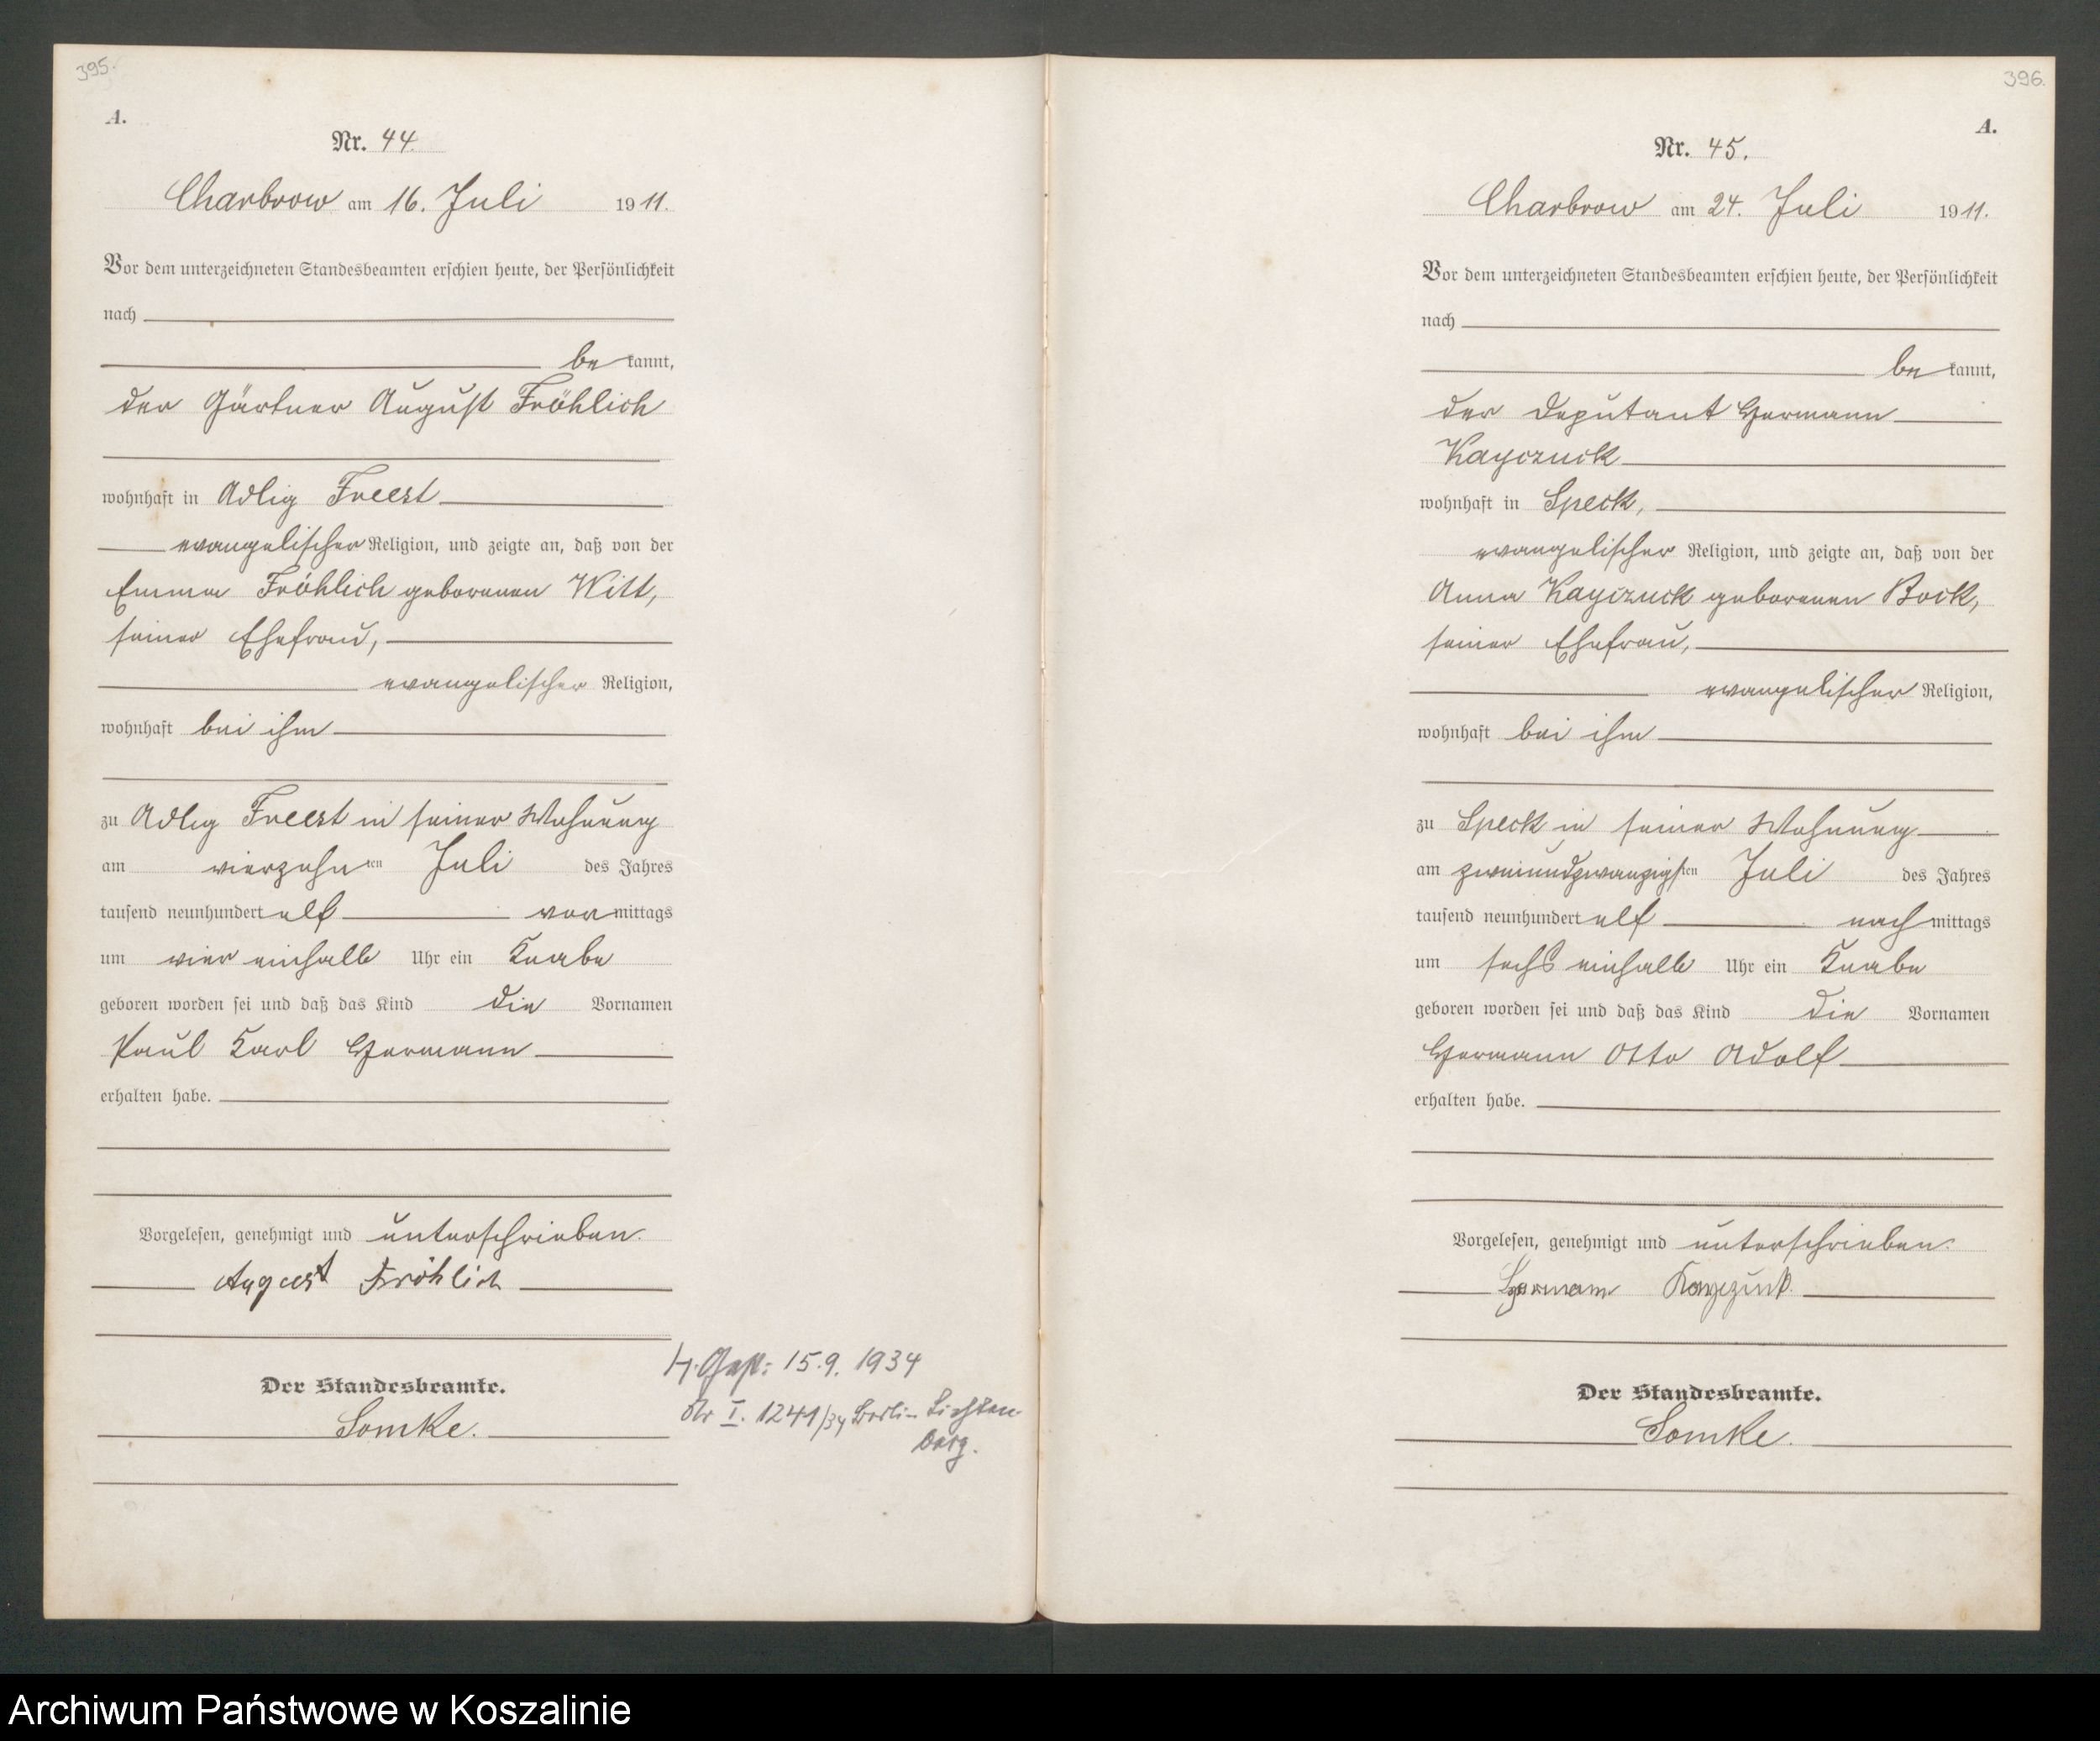 395.
A.
Nr. 44.
Charbrow am 16. Juli 1911.
Vor dem unterzeichneten Standesbeamten erschien heute, der Persönlichkeit
nach
bekannt,
der Gärtner August Fröhlich
wohnhaft in Adlig Freest
evangelischer Religion, und zeigte an, daß von der
Emma Fröhlich geborenen Witt,
seiner Ehefrau,
evangelischer Religion,
wohnhaft bei ihm
zu Adlig Freest in seiner Wohnung
am vierzehnten Juli des Jahres
tausend neunhundert elf vormittags
um vier einhalb Uhr ein Knabe
geboren worden sei und daß das Kind die Vornamen
Paul Karl Hermann
erhalten habe.
Vorgelesen, genehmigt und unterschrieben.
August Fröhlich
Der Standesbeamte.
Somke.
15.9.1934
Nr I. 1241/34 Berlin-Lichten-
berg.
396.
A.
Nr. 45.
Charbrow am 24. Juli 1911.
Vor dem unterzeichneten Standesbeamten erschien heute, der Persönlichkeit
nach
bekannt,
der Deputant Hermann
Kayczuck
wohnhaft in Speck,
evangelischer Religion, und zeigte an, daß von der
Anna Kayczuck geborenen Bock,
seiner Ehefrau,
evangelischer Religion,
wohnhaft bei ihm
zu Speck in seiner Wohnung
am zweiundzwanzigsten Juli des Jahres
tausend neunhundert elf nachmittags
um sechs einhalb Uhr ein Knabe
geboren worden sei und daß das Kind die Vornamen
Hermann Otto Adolf
erhalten habe.
Vorgelesen, genehmigt und unterschrieben.
Hermann
Der Standesbeamte.
Somke.
Archiwum Państwowe w Koszalinie